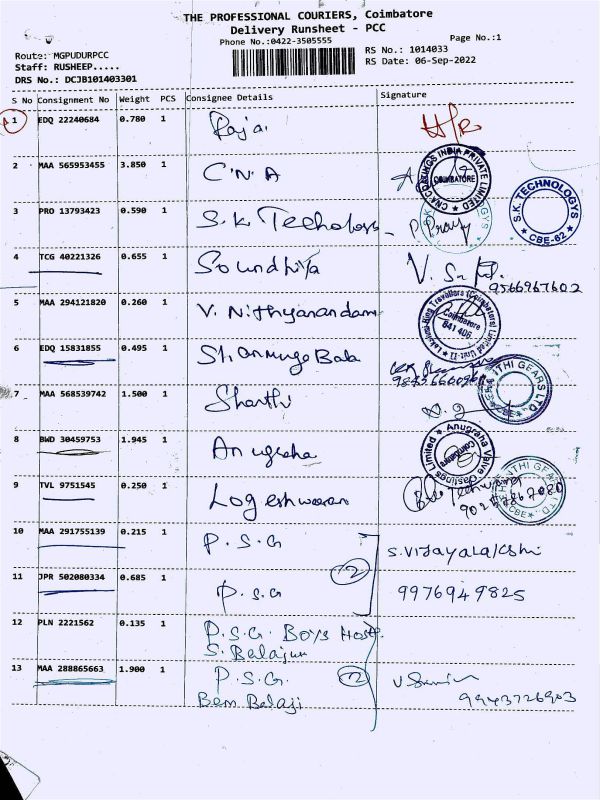 THE PROFESSIONAL COURIERS, Coimbatore
Delivery Runsheet - PCC
Phone No.:0422-3505555
Page No.:1
Route: MGPUDURPCC
Staff: RUSHEEP.....
DRS No.: DCJB101403301
RS No.: 1014033
RS Date: 06-Sep-2022
S No Consignment No Weight PCS Consignee Details Signature
1 EDQ 22240684 0.780 1 Raja H/R
2 MAA 565953455 3.850 1 C.N.A
CNA COATINGS INDIA PRIVATE LIMITED COIMBATORE
3 PRO 13793423 0.590 1 S.K
S.K. TECHNOLOGYS CBE-62
4 TCG 40221326 0.655 1 Soundhiya V. 9566967602
5 MAA 294121820 0.260 1 V. Nithyanandam
Coimbatore 641 406
6 EDQ 15831855 0.495 1 Shanmuga Bala
GEARS LTD. CBE
7 MAA 568539742 1.500 1 Shanthi
8 BWD 30459753 1.945 1 Anugraha
Anugraha Valve Castings Limited Coimbatore
9 TVL 9751545 0.250 1 Logeshwaran
SHANTHI GEARS LTD. CBE
10 MAA 291755139 0.215 1 P.S.G S.Vijayalakshi
11 JPR 502080334 0.685 1 P.S.G 2 9976949825
12 PLN 2221562 0.135 1 P.S.G. Boys Host
S.
13 MAA 288865663 1.900 1 P.S.G. 2 9943726903
Balaji